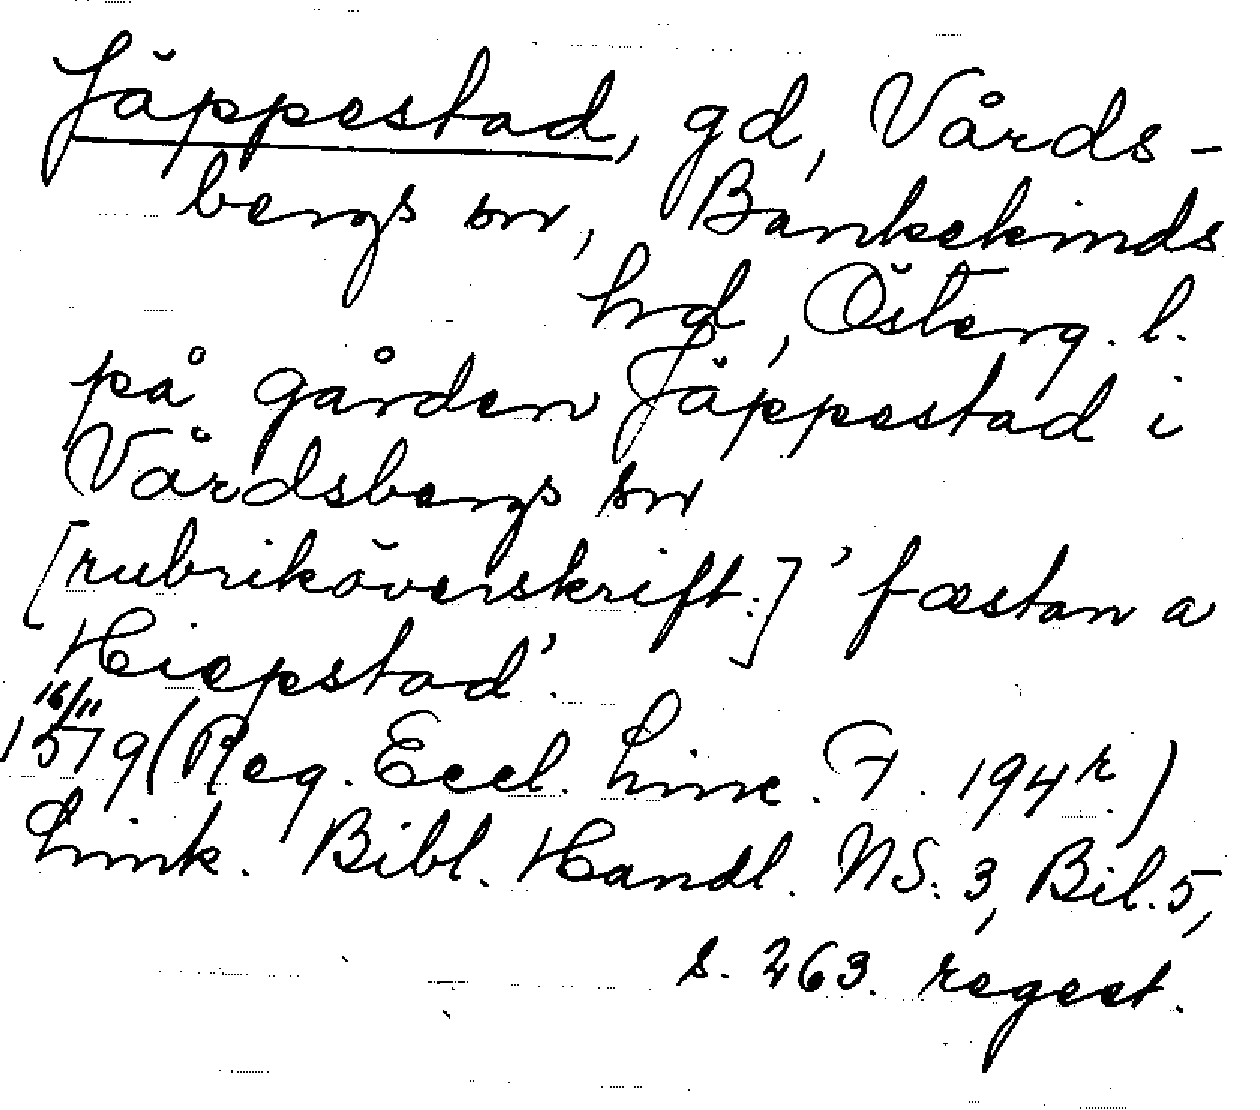 Jäppestad, gd, Vårds-
bergs sn, Bankekinds
hd, Österg. l.
på gården Jäppestad i
Vårdsbergs sn
[rubriköverskrift:] 'fæstan a
Hiepstad'.
16/11
1579 (Reg. Eccl. Linc. F. 194r.)
Link. Bibl. Handl. NS: 3, Bil. 5,
s. 263. regest.